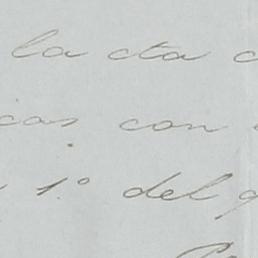 la cta
cas con
1.º del